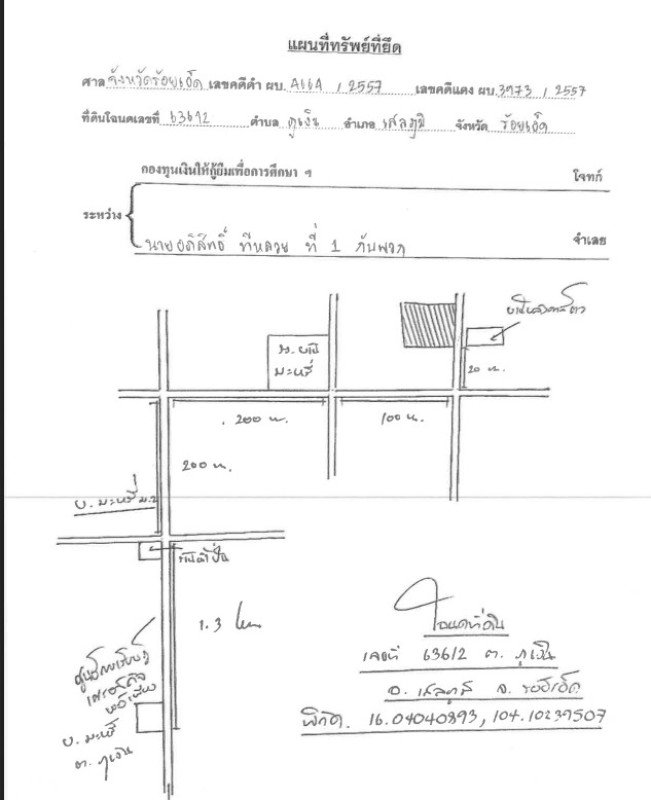 แผนที่ทรัพย์ที่ยึด
ศาล จังหวัดร้อยเอ็ด เลขคดีดำ ผบ. / 2557 เลขคดีแดง ผบ. 3973 / 2557
ที่ดินโฉนดเลขที่ 63612 ตำบล ภูเงิน อำเภอ เสลภูมิ จังหวัด ร้อยเอ็ด
กองทุนเงินให้กู้ยืมเพื่อการศึกษา ฯ โจทก์
ระหว่าง
นายอภิสิทธิ์ ทีหลวย ที่ 1 กับพวก จำเลย
20 ม.
200 ม. 100 ม.
200 ม.
บ. มะหรี่ ม.2
1.3
ศูนย์การเรียนรู้
เศรษฐกิจ
พอเพียง
บ. มะหรี่
ต. ภูเงิน
โฉนดที่ดิน
เลขที่ 63612 ต. ภูเงิน
อ. เสลภูมิ จ. ร้อยเอ็ด
พิกัด. 16.04040893, 104.10239507